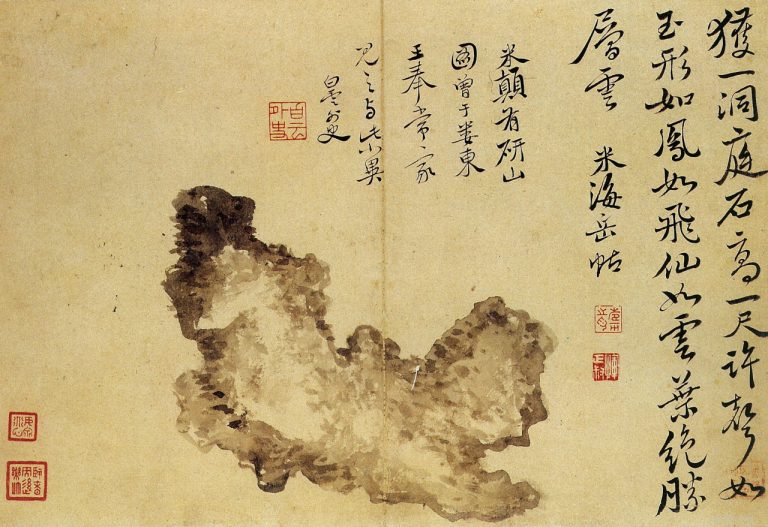 獲一洞庭石高一尺許聲如
玉形如鳳如飛仙如雲葉絶勝
層雲
米海岳帖
米顛有研山
圖曾于婁東
王奉常家
見之与此小異
白云外史